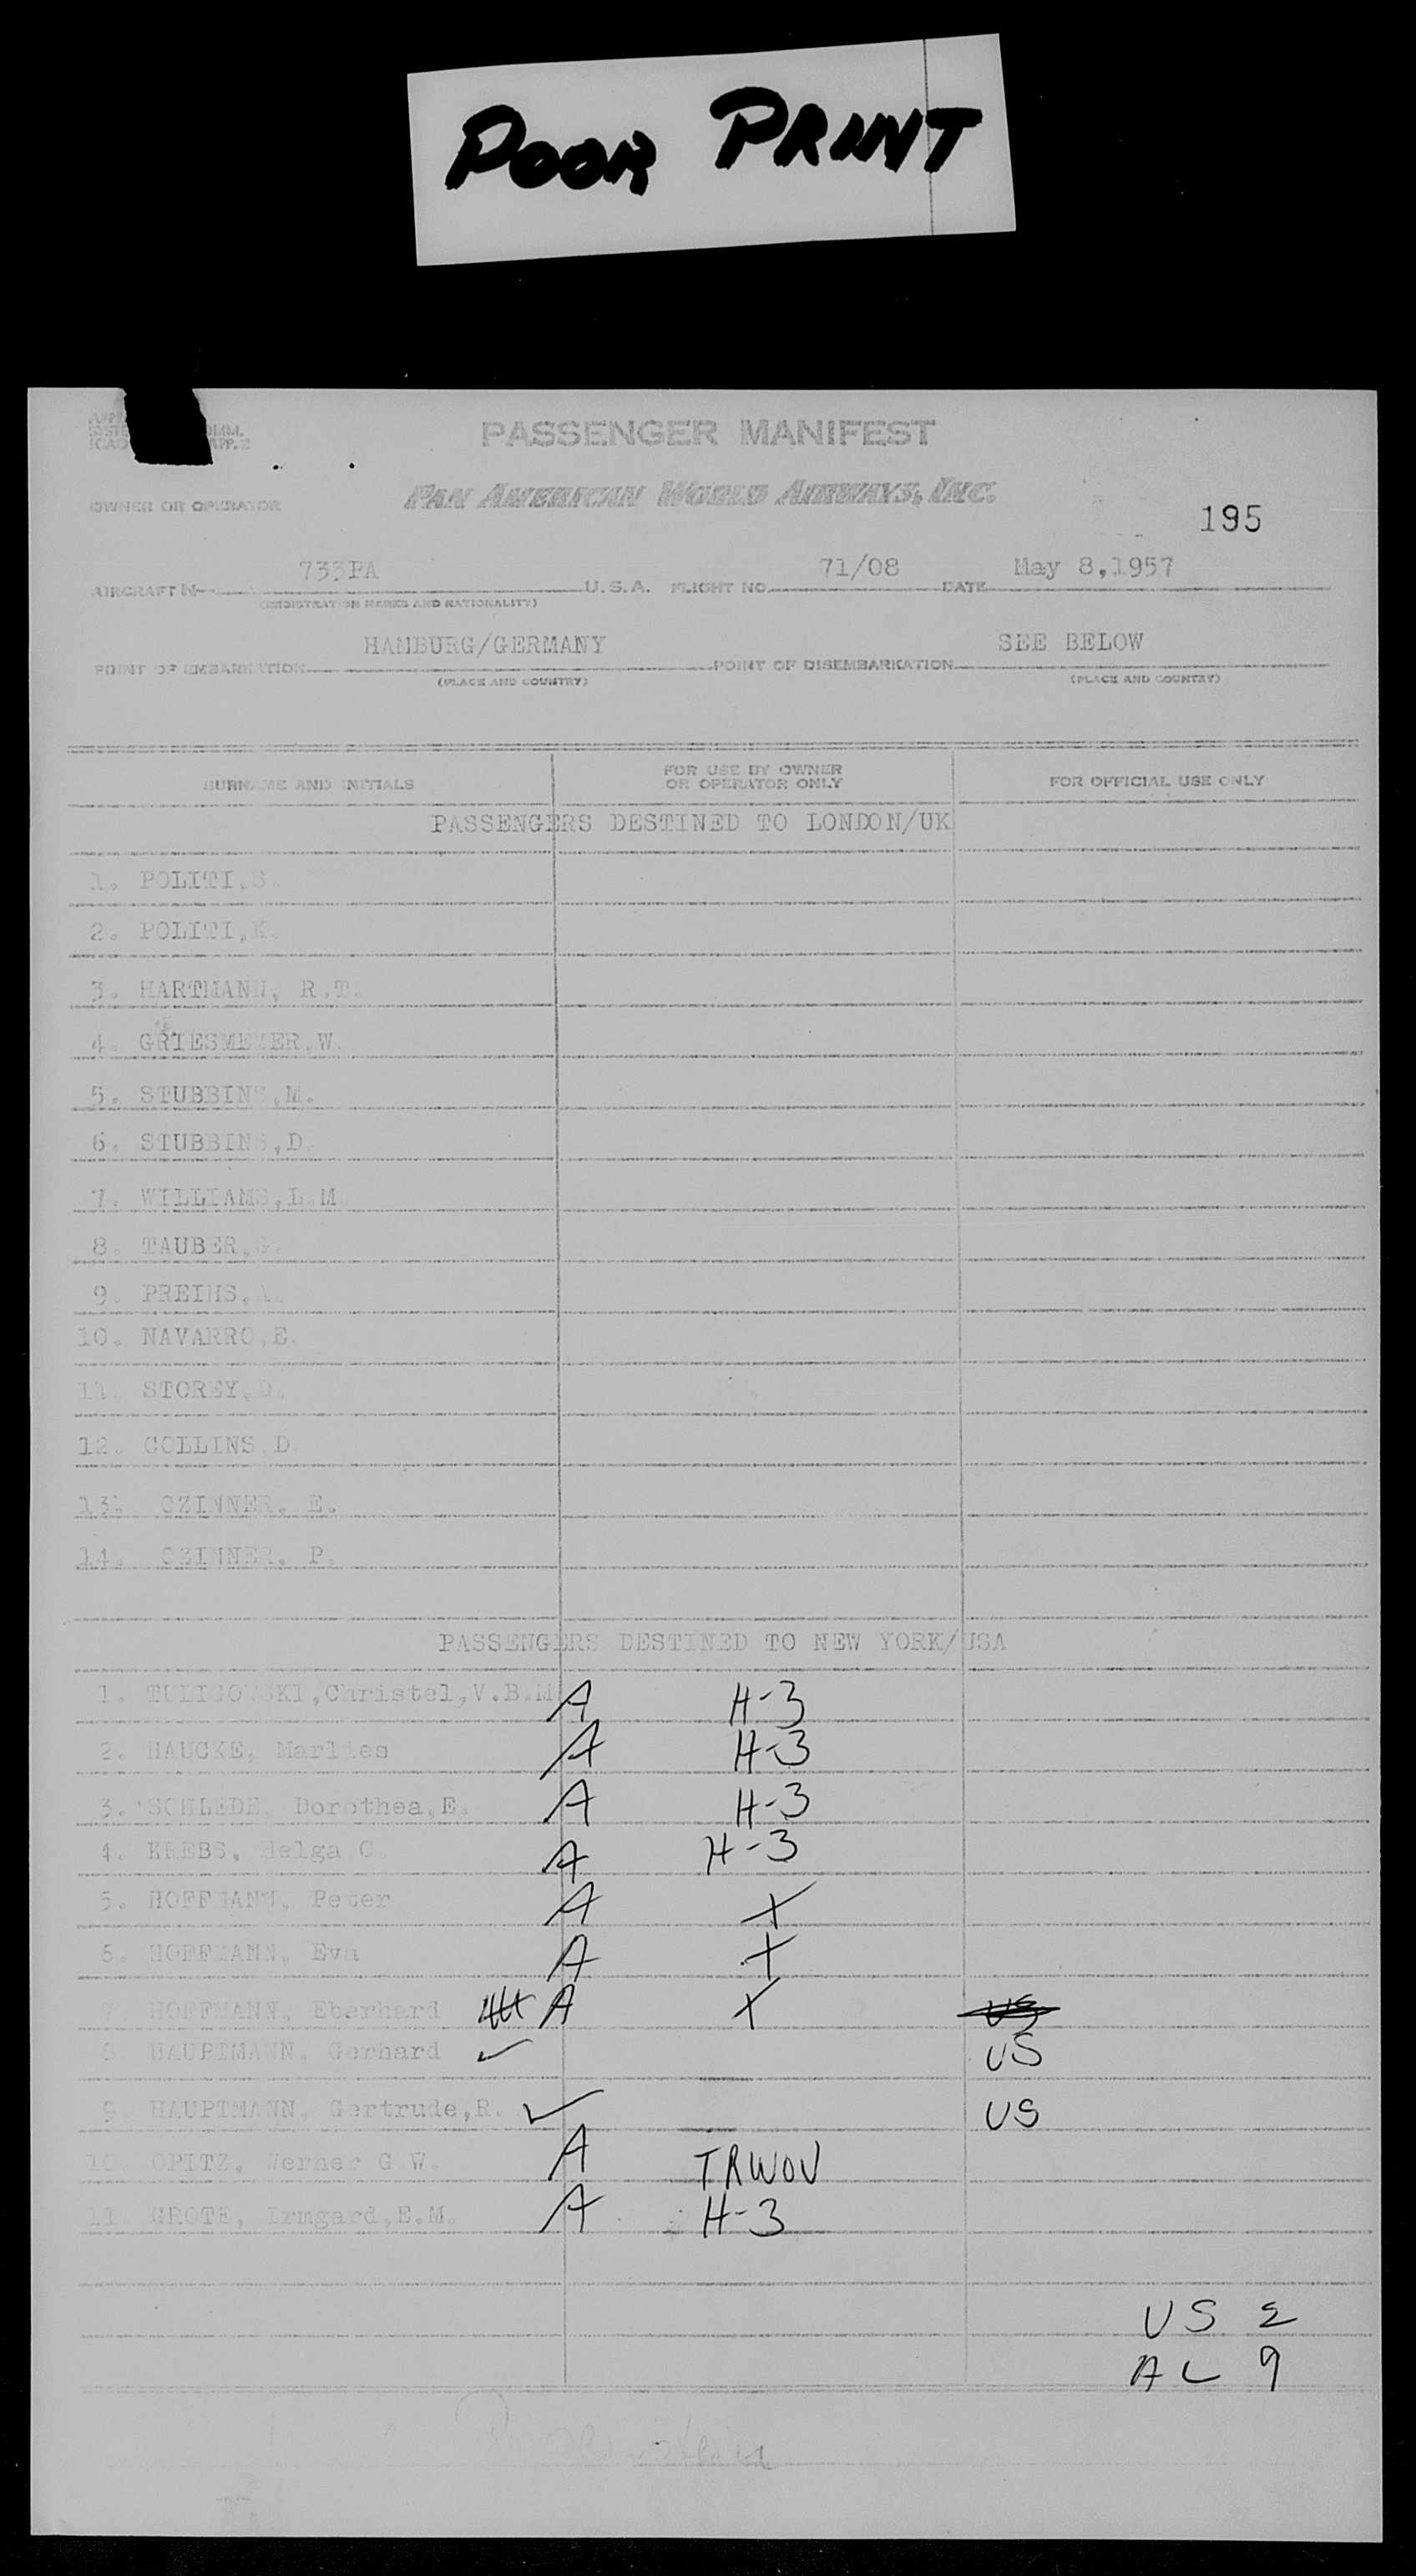 POOR PRINT
PASSENGER MANIFEST
OWNER OR OPERATOR PAN AMERICAN WORLD AIRWAYS, INC.
195
AIRCRAFT No 733PA U.S.A. FLIGHT NO. 71/08 DATE May 8,1957
(REGISTRATION MARKS AND NATIONALITY)
POINT OF EMBARKATION HAMBURG/GERMANY POINT OF DISEMBARKATION SEE BELOW
(PLACE AND COUNTRY) (PLACE AND COUNTRY)
SURNAME AND INITIALS FOR USE BY OWNER OR OPERATOR ONLY FOR OFFICIAL USE ONLY
PASSENGERS DESTINED TO LONDON/UK
1. POLITI,S.
2. POLITI,K.
3. HARTMANN, R.T.
4. GRIESMEYER,W.
5. STUBBINS,M.
6. STUBBINS,D.
7. WILLIAMS,L.M
8. TAUBER,
9. PREIHS,A.
10. NAVARRO,E.
11. STOREY,D.
12. COLLINS,D.
13. CZINNER. E.
14. CZINNER. P.
PASSENGERS DESTINED TO NEW YORK/USA
1. TULIGOWSKI,Christel,V.B.M A H-3
2. HAUCKE, Marlies A H-3
3. SCHLEDE, Dorothea,E. A H-3
4. KREBS, Helga C. A H-3
5. HOFFMANN, Peter A X
6. HOFFMANN, Eva A X
7. HOFFMANN, Eberhard A X US
8. HAUPTMANN, Gerhard ✓ US
9. HAUPTMANN, Gertrude,R. ✓ US
10. OPITZ, Werner G.W. A TRWOV
11. GROTE, Irmgard,E.M. A H-3
US 2
AL 9